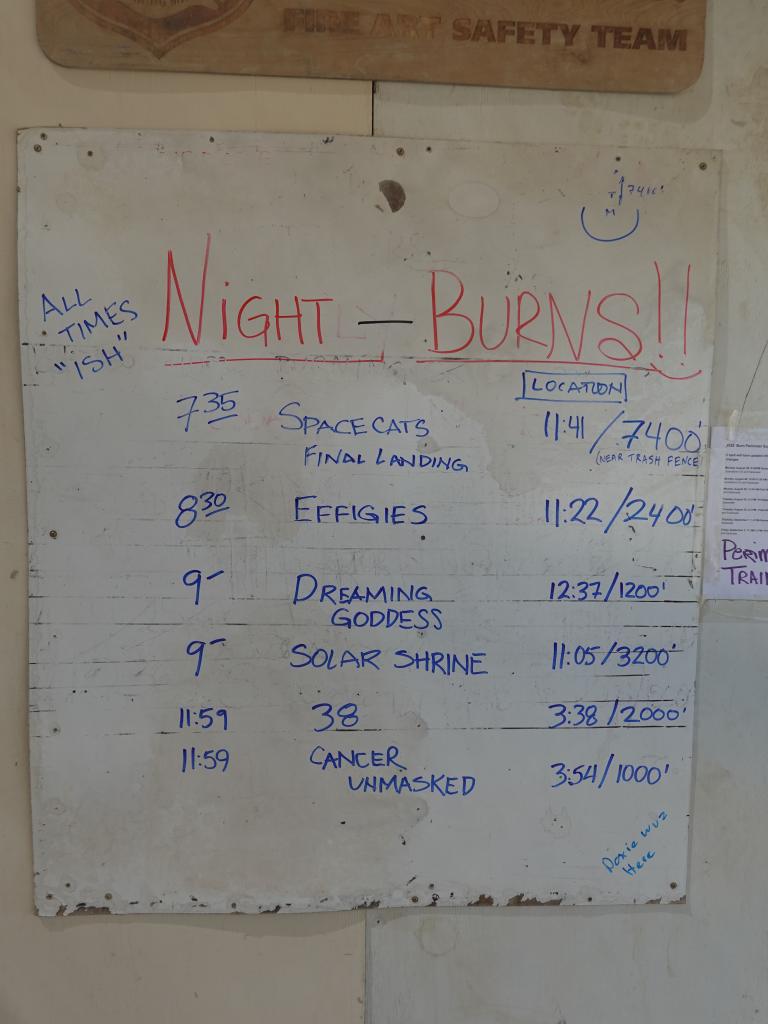 FIRE ART SAFETY TEAM
T
M
ALL TIMES "ISH"
NIGHT — BURNS!!
LOCATION
7 35 SPACE CATS FINAL LANDING 11:41 / 7400'
(NEAR TRASH FENCE
8 30 EFFIGIES 11:22 / 2400'
9- DREAMING GODDESS 12:37/1200'
9- SOLAR SHRINE 11:05/3200'
11:59 38 3:38 / 2000'
11:59 CANCER UNMASKED 3:54/1000'
Doxie wuz
Here